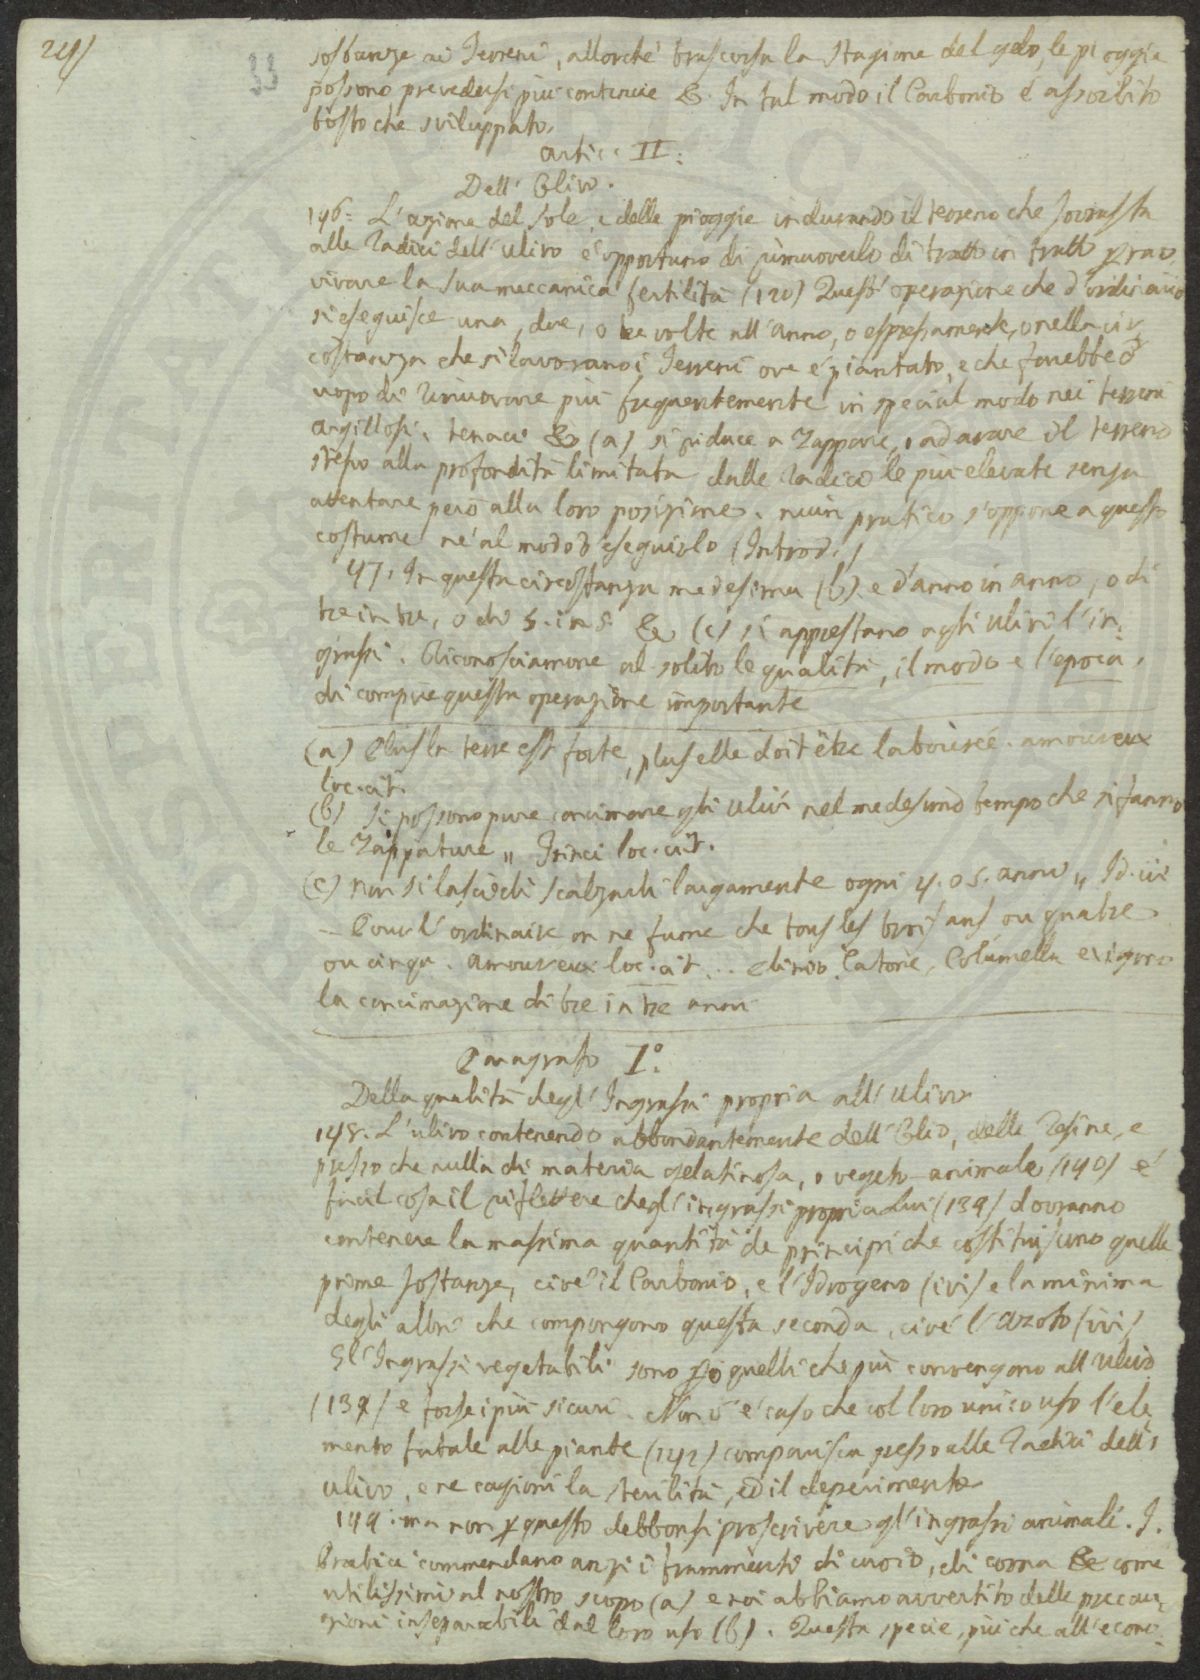 241
33
sostanze ai Terreni, allorché trascorsa la stagione del gelo, le pioggie
possono prevedersi più continue &. In tal modo il Carbonio é assorbito
tosto che sviluppato.
Artic. II:
Dell' Olivo.
146. L'azione del sole, e delle pioggie indurando il terreno che sovrasta
alle radici dell'ulivo é opportuno di rimuoverlo di tratto in tratto per rav
vivare la sua meccanica fertilità (120) Quest' operazione che d'ordinario
si eseguisce una, due, o tre volte all'anno, o espressamente, o nella cir
costanza che si lavorano i Terreni ove é piantato, e che sarebbe d'
uopo di rinnovare più frequentemente in special modo nei terreni
argillosi, tenaci & (a) si riduce a Zappare, o ad arare il terreno
stesso alla profondità limitata dalle radici le più elevate senza
attentare però alla loro posizione. niun pratico s'oppone a questo
costume né al modo d'eseguirlo (Introd.)
47. In questa circostanza medesima (b) e d'anno in anno, o di
tre in tre, o di 5. in 5. & (c) si apprestano agli ulivi l'in,
grassi. Riconosciamone al solito le qualità, il modo e l'epoca,
di compire questa operazione importante
(a) Plus la terre est forte, plus elle doit être labourée. amoureux
loc. cit.
(b) Si possono pure concimare gli ulivi nel medesimo tempo che si fanno
le Zappature „ Trinci loc. cit.
(c) non si lasci di scalzarli largamente ogni 4. o 5. anni „ Id. ivi
– Pour l'ordinaire on ne fume che tous les trois ans ou quatre
ou cinqu. Amoureux loc. cit... Plinio, Catone, Columella esigono
la concimazione di tre in tre anni
Paragrafo I°.
Della qualità degl' Ingrassi propria all' Ulivo
148. L'ulivo contenendo abbondantemente dell' Olio, delle Resine, e
presso che nulla di materia gelatinosa, o vegeto-animale (140) é
facil cosa il riflettere che gl'ingrassi propri a Lui (139) dovranno
contenere la massima quantità de principj che costituiscono quelle
prime sostanze, cioé il Carbonio, e l'Idrogeno (ivi) e la minima
degli altri che compongono questa seconda, cioé l'azoto (ivi)
Gl'Ingrassi vegetabili sono però quelli che più convengono all'ulivo
(139) e forse i più sicuri. Non v'é caso che col loro unico uso l'ele,
mento fatale alle piante (142) comparisca presso alle radici dell'
ulivo, e ne cagioni la sterilità, ed il deperimento
149. ma non per questo debbonsi proscrivere gl'ingrassi animali. I.
Pratici commendano anzi i frammenti di cuojo, di corna & come
utilissimi al nostro scopo (a) e noi abbiamo avvertito delle precau,
zioni inseparabili dal loro uso (b). Questa specie, più che all'econo